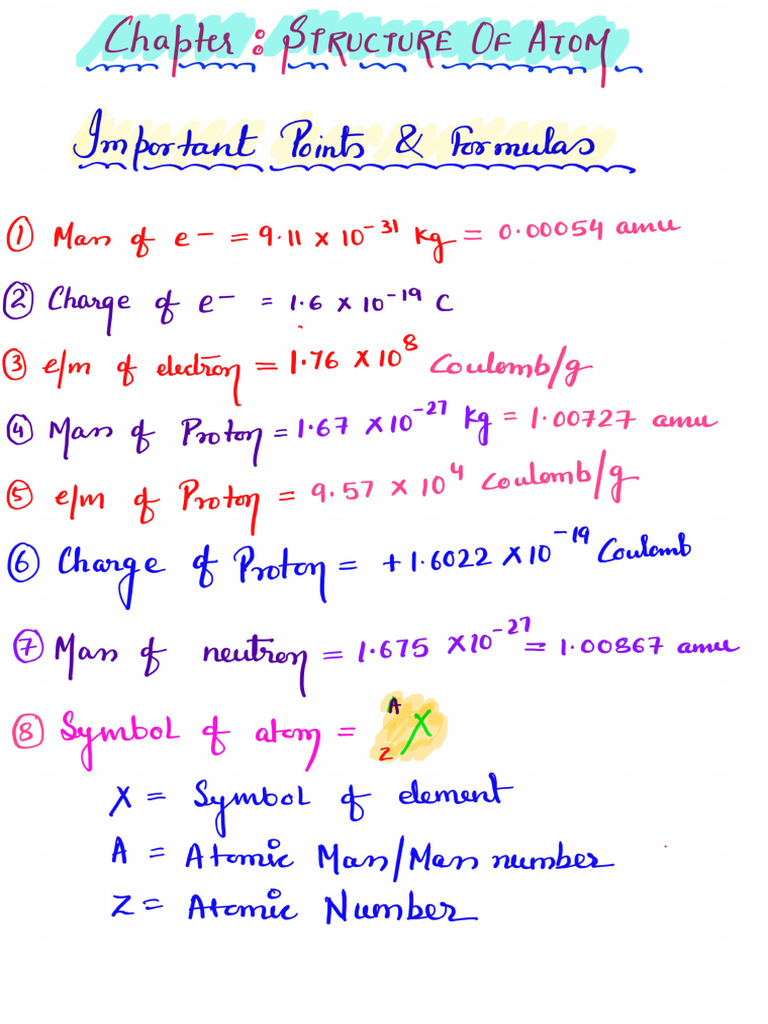 Chapter : STRUCTURE OF ATOM
Important Points & Formulas
① Mass of e⁻ = 9.11 x 10⁻³¹ kg = 0.00054 amu
② Charge of e⁻ = 1.6 x 10⁻¹⁹ C
③ e/m of electron = 1.76 x 10⁸ Coulomb/g
④ Mass of Proton = 1.67 x 10⁻²⁷ kg = 1.00727 amu
⑤ e/m of Proton = 9.57 x 10⁴ Coulomb/g
⑥ Charge of Proton = +1.6022 x 10⁻¹⁹ Coulomb
⑦ Mass of neutron = 1.675 x 10⁻²⁷ = 1.00867 amu
⑧ Symbol of atom = ᴬ_Z X
X = Symbol of element
A = Atomic Mass/Mass number
Z = Atomic Number